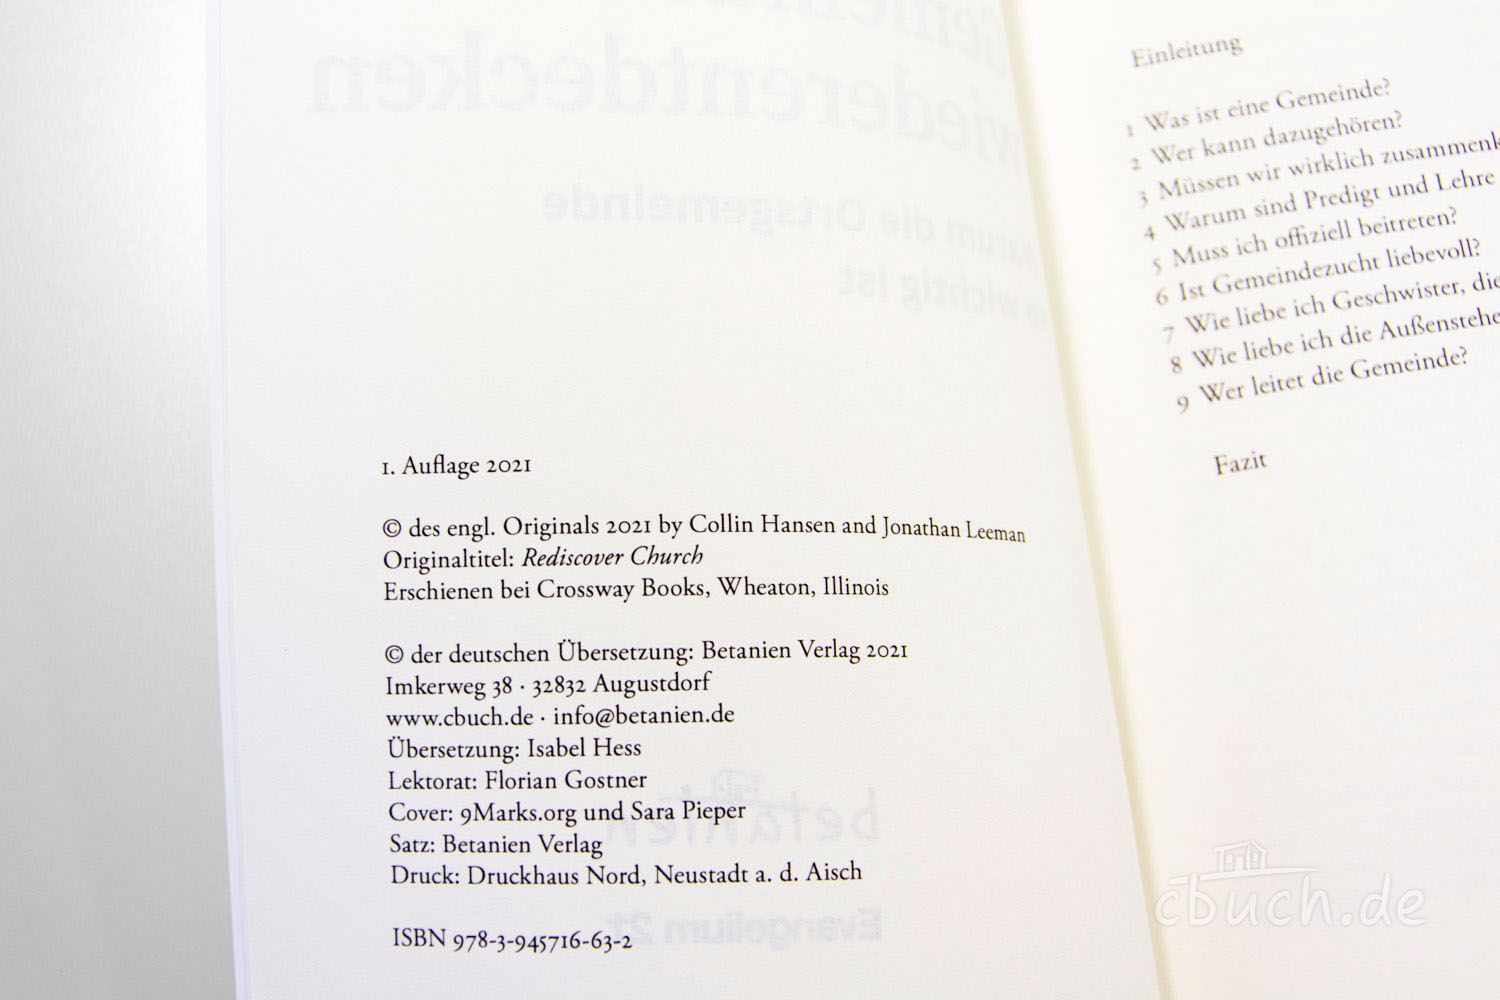 1. Auflage 2021
© des engl. Originals 2021 by Collin Hansen and Jonathan Leeman
Originaltitel: Rediscover Church
Erschienen bei Crossway Books, Wheaton, Illinois
© der deutschen Übersetzung: Betanien Verlag 2021
Imkerweg 38 · 32832 Augustdorf
www.cbuch.de · info@betanien.de
Übersetzung: Isabel Hess
Lektorat: Florian Gostner
Cover: 9Marks.org und Sara Pieper
Satz: Betanien Verlag
Druck: Druckhaus Nord, Neustadt a. d. Aisch
ISBN 978-3-945716-63-2
Einleitung
1 Was ist eine Gemeinde?
2 Wer kann dazugehören?
3 Müssen wir wirklich
4 Warum sind Predigt und Lehre
5 Muss ich offiziell beitreten?
6 Ist Gemeindezucht liebevoll?
7 Wie liebe ich Geschwister, die
8 Wie liebe ich die
9 Wer leitet die Gemeinde?
Fazit
cbuch.de
wiederentdecken
Warum die Ortsgemeinde
so wichtig ist
betanien
Evangelium 21